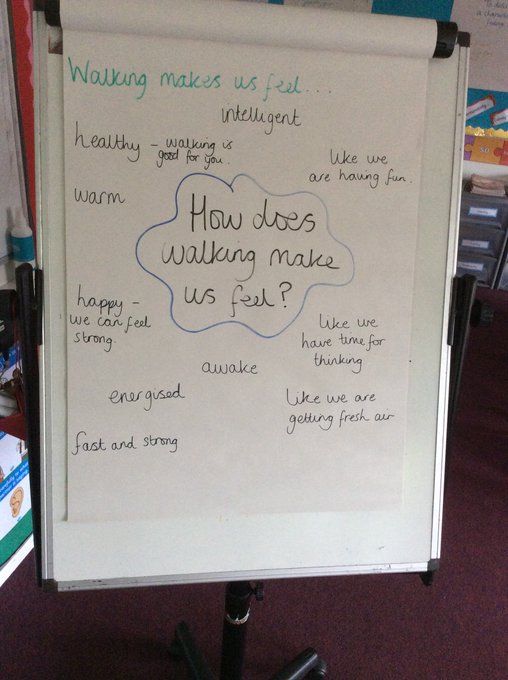 Walking makes us feel...
intelligent
healthy - walking is
good for you.
like we
are having fun.
warm
How does
walking make
us feel?
happy -
we can feel
strong.
like we
have time for
thinking
awake
energised
like we are
getting fresh air
fast and strong